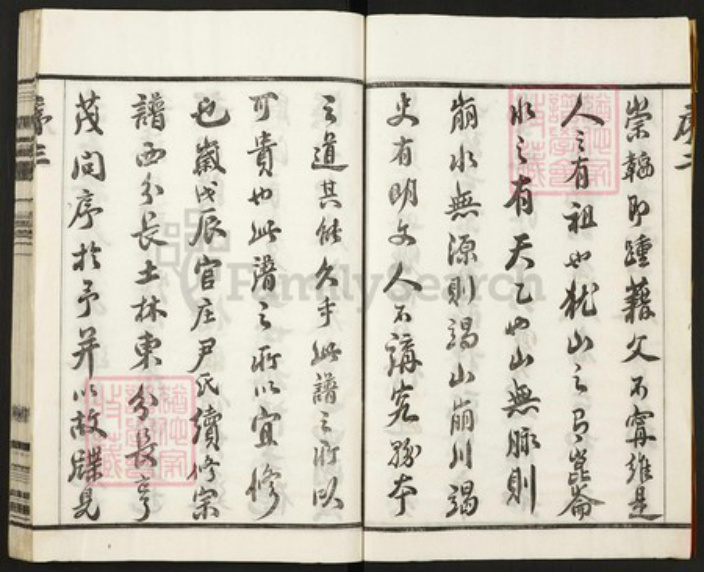 序二
崇韜即踵藉父不寧維是
人之有祖也猶山之有崑崙
水之有天乙也山無脉則
崩水無源則竭山崩川竭
史有明文人不講究夥本
之道其能久乎此譜之所以
可貴也此譜之所以宜修
也歲戊辰官庄尹氏續修宗
譜西分長士林東分長亨
茂問序於予并以故牒見
序三
FamilySearch